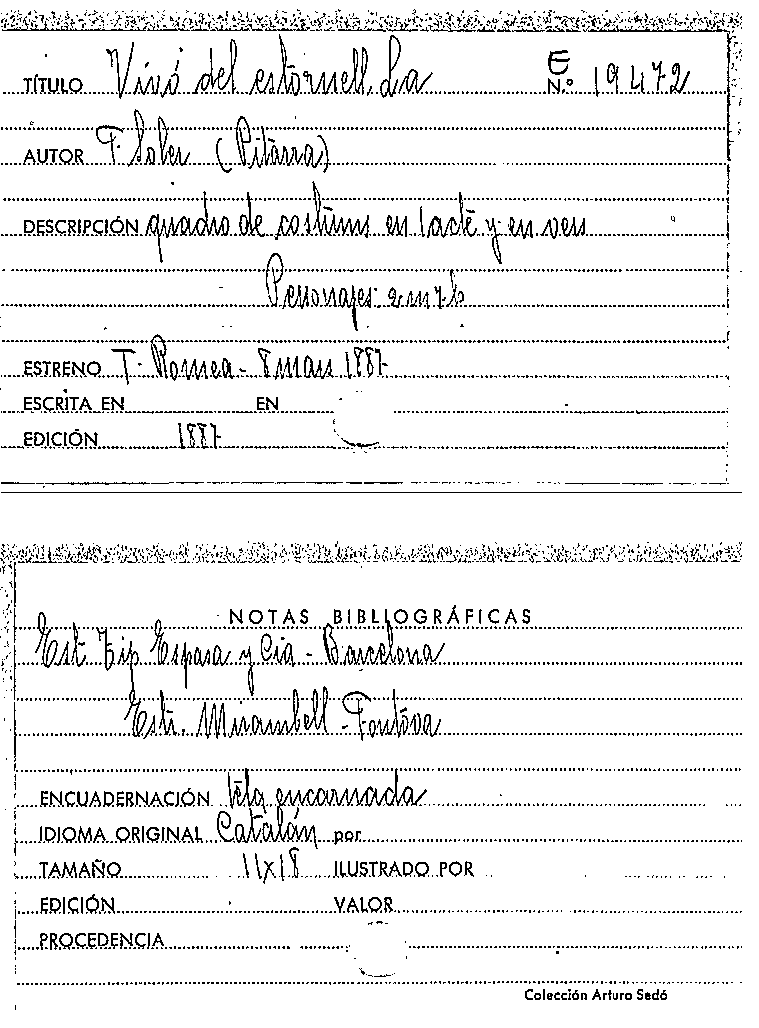 TÍTULO Vivó del estornell, La E N.º 19472
AUTOR F. Soler (Pitarra)
DESCRIPCIÓN quadro de costums en 1 acte y en vers
Personajes: 2 m 7 h
ESTRENO T. Romea - 8 mars 1887
ESCRITA EN EN
EDICIÓN 1887
NOTAS BIBLIOGRÁFICAS
Est. Tip. Espasa y Cia - Barcelona
Estr. Mirambell - Fontova
ENCUADERNACIÓN tela encarnada
IDIOMA ORIGINAL Catalán por
TAMAÑO 11x18 ILUSTRADO POR
EDICIÓN VALOR
PROCEDENCIA
Colección Arturo Sedó